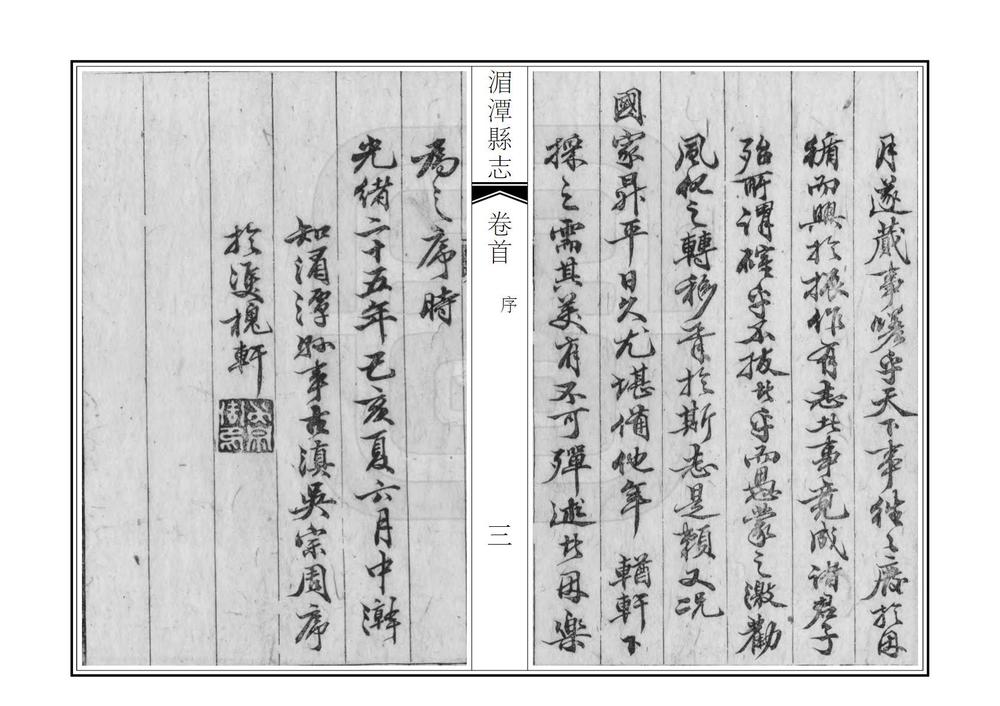 月遂蕆事嗟乎天下事往々廢於因
循而興於振作有志者事竟成諸君子
殆所謂確乎不拔者乎而愚蒙之激勸
風俗之轉移章於斯志是賴又況
國家昇平日久尤堪備他年 輶軒下
採之需其美有不可殫述者因樂
湄潭縣志
卷首
序
三
為之序時
光緒二十五年己亥夏六月中澣
知湄潭縣事古滇吳宗周序
於雙槐軒